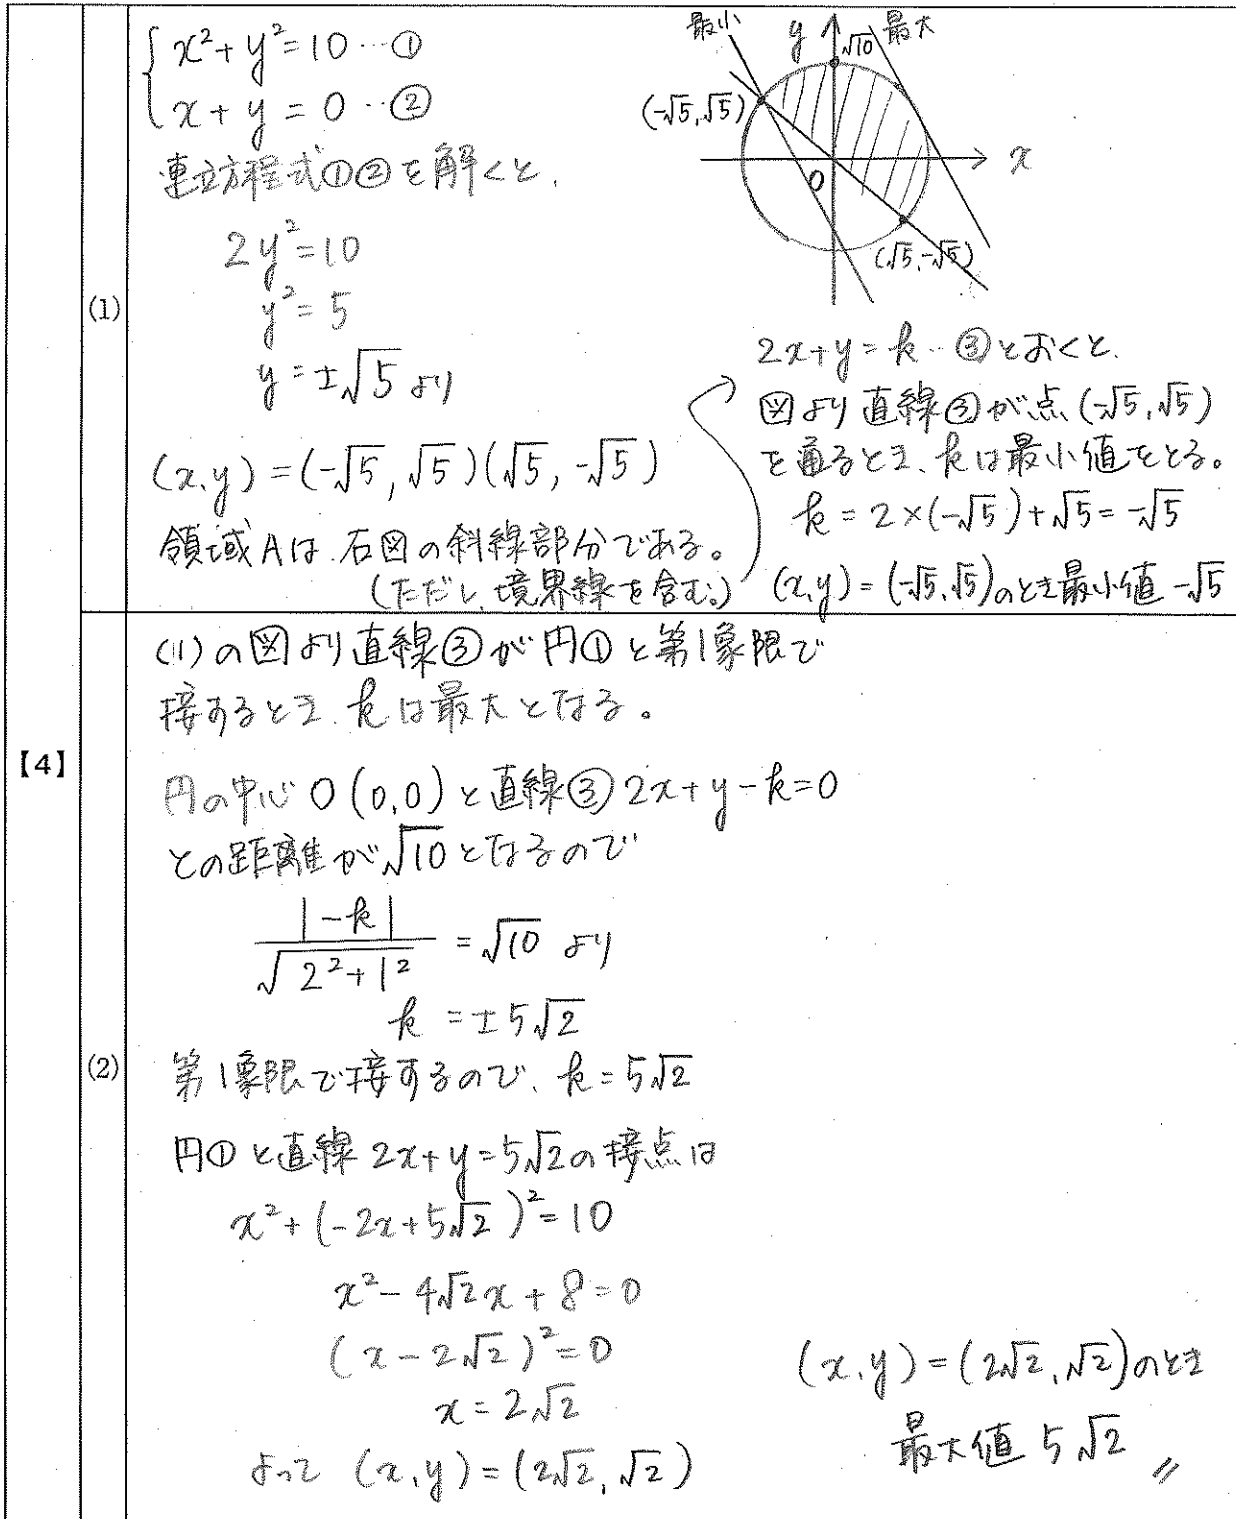 【4】
(1)
x²+y²=10…①
x+y=0…②
連立方程式①②を解くと、
2y²=10
y²=5
y=±√5 より
(x,y)=(-√5,√5)(√5,-√5)
領域Aは、右図の斜線部分である。
(ただし、境界線を含む。)
最小
y
√10
最大
(-√5,√5)
O
x
(√5,-√5)
2x+y=k…③とおくと、
図より直線③が点(-√5,√5)
を通るとき、kは最小値をとる。
k=2×(-√5)+√5=-√5
(x,y)=(-√5,√5)のとき最小値 -√5
(2)
(1)の図より直線③が円①と第1象限で
接するとき、kは最大となる。
円の中心O(0,0)と直線③2x+y-k=0
との距離が√10となるので
|-k|/√(2²+1²)=√10 より
k=±5√2
第1象限で接するので、k=5√2
円①と直線2x+y=5√2の接点は
x²+(-2x+5√2)²=10
x²-4√2x+8=0
(x-2√2)²=0
x=2√2
よって (x,y)=(2√2,√2)
(x,y)=(2√2,√2)のとき
最大値 5√2 〃